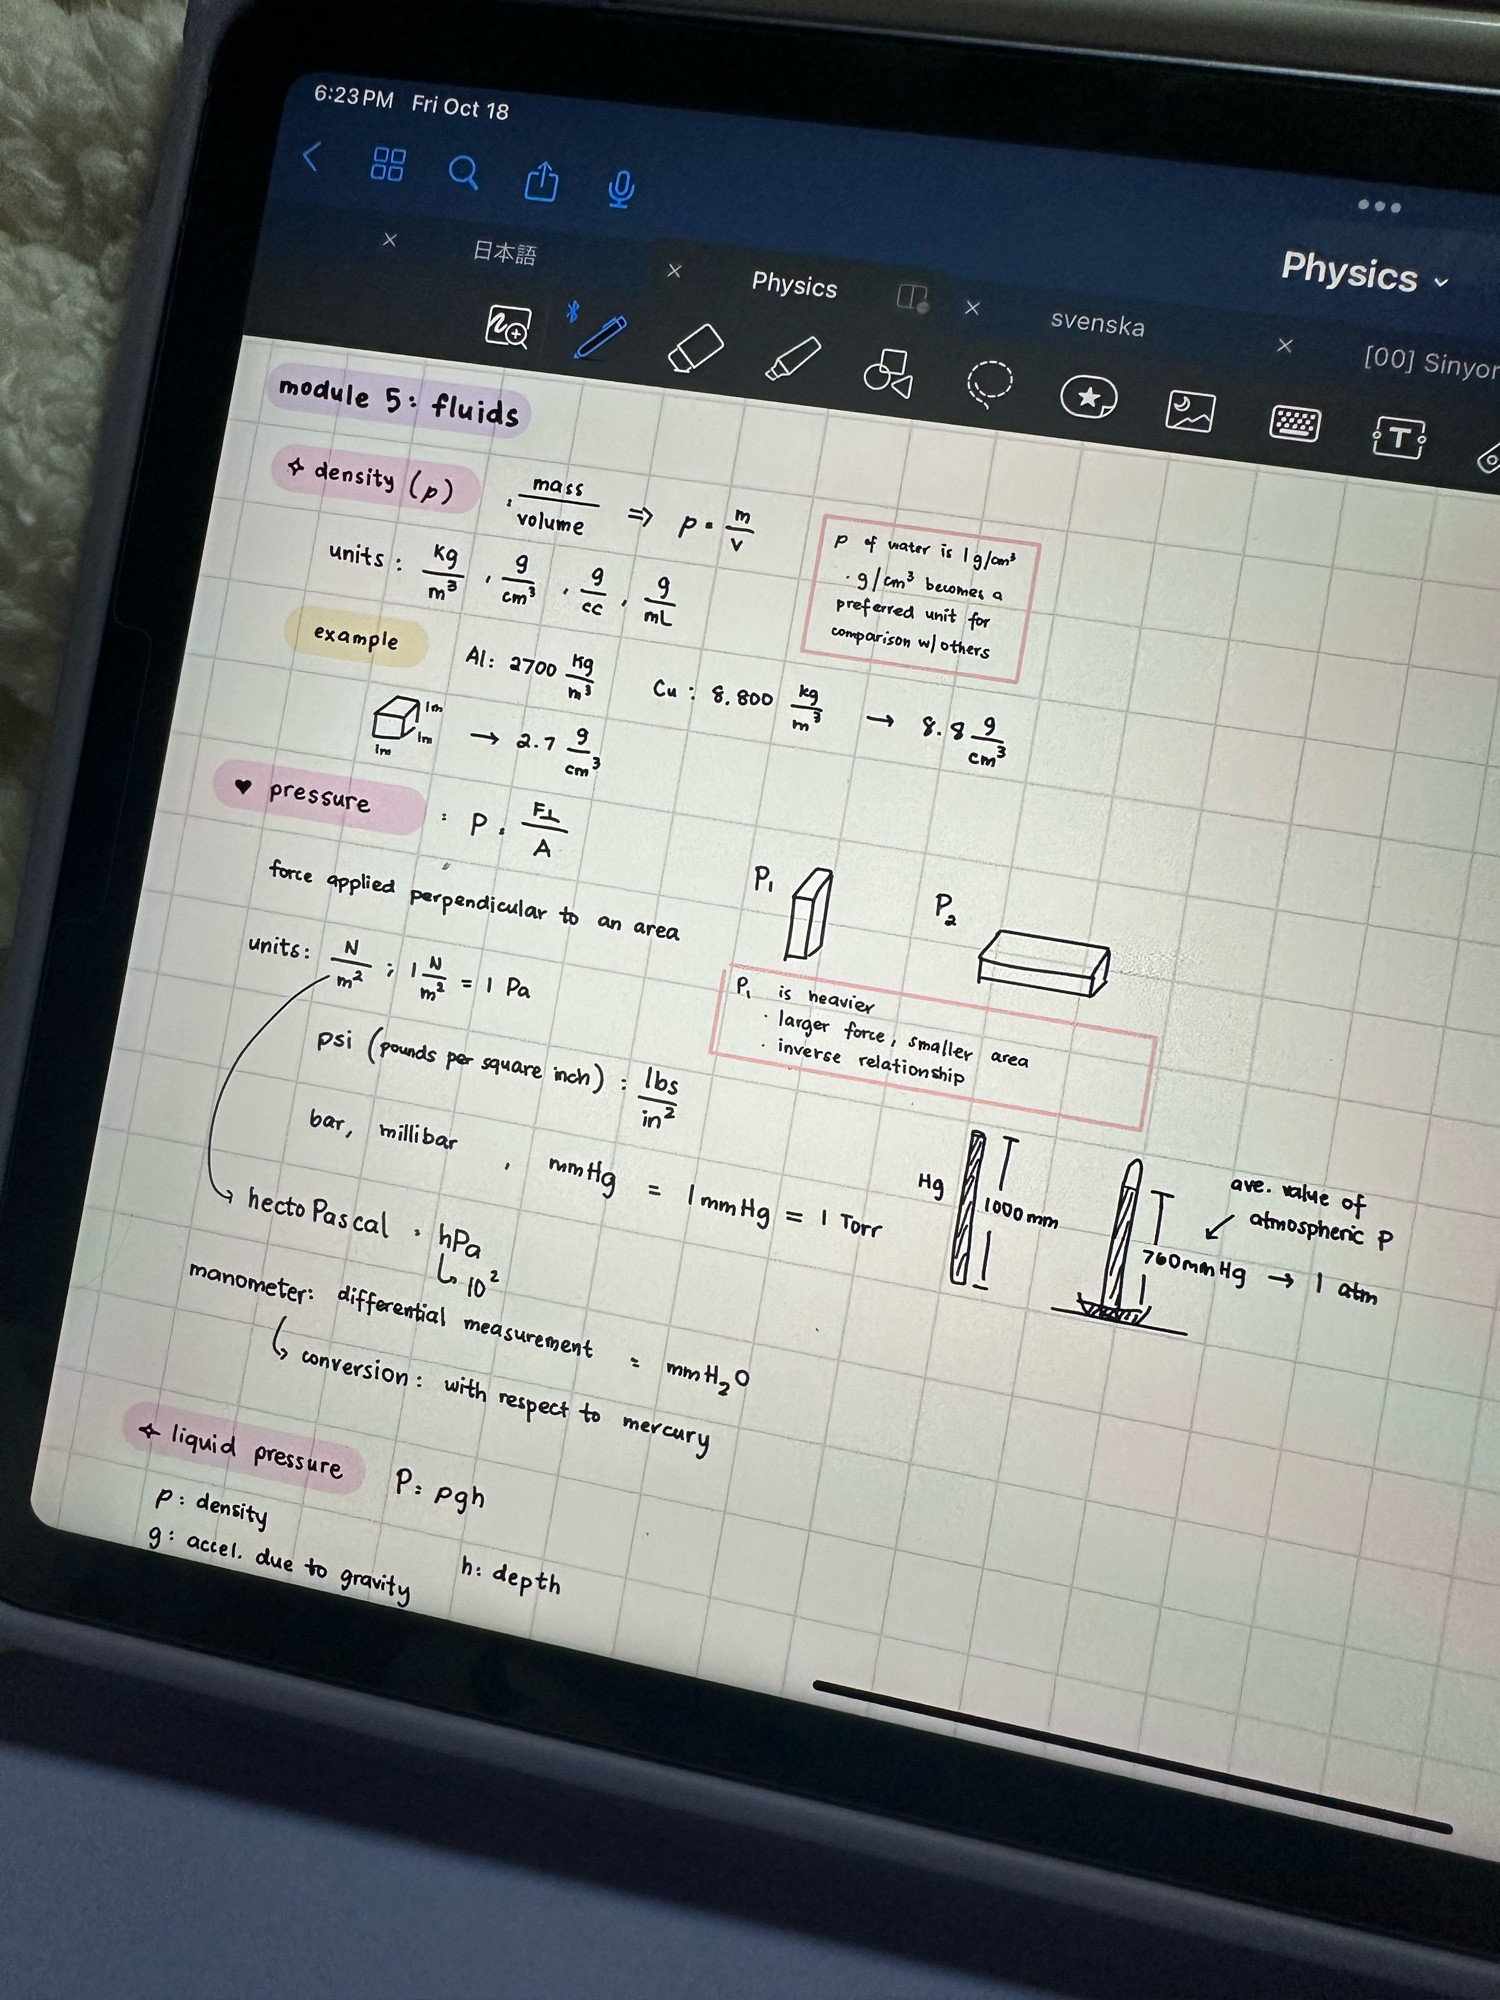 6:23 PM Fri Oct 18
Physics
日本語
Physics
svenska
[00] Sinyor
module 5: fluids
✧ density (ρ) : mass/volume ⇒ ρ = m/v
units : kg/m³ , g/cm³ , g/cc , g/mL
ρ of water is 1 g/cm³
· g/cm³ becomes a
preferred unit for
comparison w/ others
example
Al: 2700 kg/m³
Cu : 8.800 kg/m³ → 8.8 g/cm³
1m
1m
1m
→ 2.7 g/cm³
♥ pressure : P = F⊥/A
force applied perpendicular to an area
P₁
P₂
units: N/m² ; 1 N/m² = 1 Pa
P₁ is heavier
· larger force, smaller area
· inverse relationship
psi (pounds per square inch) : lbs/in²
bar, millibar , mmHg = 1 mmHg = 1 Torr
Hg
1000 mm
ave. value of
atmospheric P
760 mmHg → 1 atm
hectoPascal = hPa
↳ 10²
manometer: differential measurement = mmH₂O
↳ conversion: with respect to mercury
✧ liquid pressure P = ρgh
ρ: density
g: accel. due to gravity
h: depth